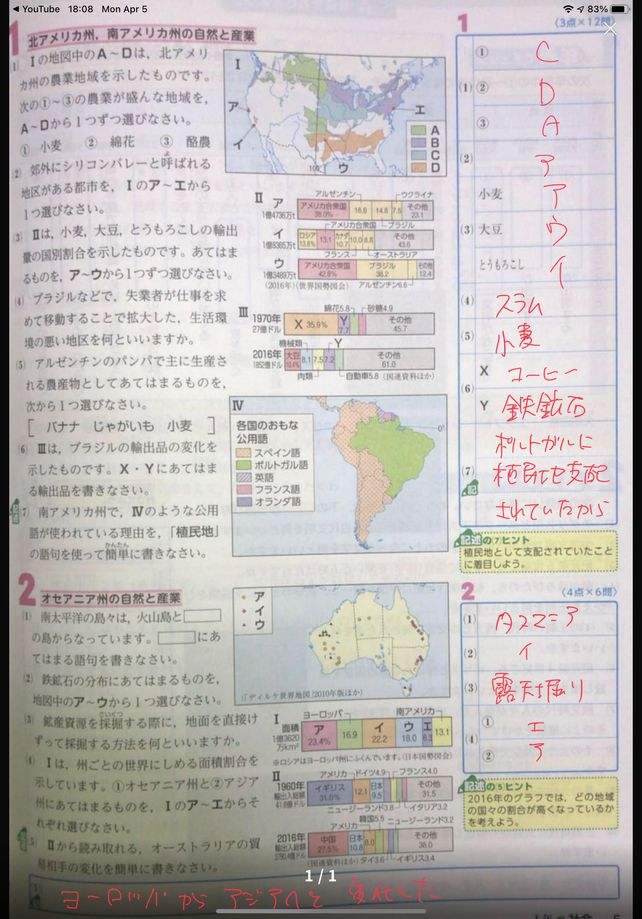 YouTube 18:08 Mon Apr 5 83%
1 北アメリカ州，南アメリカ州の自然と産業
(1) Ⅰの地図中のA～Dは，北アメリ
カ州の農業地域を示したものです。
次の①～③の農業が盛んな地域を，
A～Dから1つずつ選びなさい。
① 小麦 ② 綿花 ③ 酪農
(2) 郊外にシリコンバレーと呼ばれる
地区がある都市を，Ⅰのア～エから
1つ選びなさい。
(3) Ⅱは，小麦，大豆，とうもろこしの輸出
量の国別割合を示したものです。あてはま
るものを，ア～ウから1つずつ選びなさい。
(4) ブラジルなどで，失業者が仕事を求
めて移動することで拡大した，生活環
境の悪い地区を何といいますか。
(5) アルゼンチンのパンパで主に生産さ
れる農産物としてあてはまるものを，
次から1つ選びなさい。
[ バナナ じゃがいも 小麦 ]
(6) Ⅲは，ブラジルの輸出品の変化を
示したものです。X・Yにあてはま
る輸出品を書きなさい。
(7) 南アメリカ州で，Ⅳのような公用
語が使われている理由を，「植民地」
の語句を使って簡単に書きなさい。
Ⅰ
ア
イ
ウ
エ
100°
A
B
C
D
Ⅱ
アルゼンチン ウクライナ
ア 1億4736万t アメリカ合衆国 38.0% 16.6 14.8 7.5 その他 23.1
アメリカ合衆国 ブラジル
イ 1億8365万t ロシア 13.8% 13.1 カナダ 10.7 10.0 8.8 その他 43.6
フランス オーストラリア
ウ 1億3489万t アメリカ合衆国 42.8% ブラジル 38.2 その他 12.4
(2016年)(世界国勢図会) アルゼンチン6.6
Ⅲ
綿花5.8 砂糖4.9
1970年 27億ドル X 35.9% Y 7.7 その他 45.7
機械類 Y
2016年 1852億ドル 大豆 10.4% 8.1 7.5 7.2 その他 61.0
肉類 自動車5.8 (国連資料ほか)
Ⅳ
各国のおもな
公用語
スペイン語
ポルトガル語
英語
フランス語
オランダ語
0°
1 〈3点×12問〉
(1) ① C
② D
③ A
(2) ア
(3) 小麦 ア
大豆 ウ
とうもろこし イ
(4) スラム
(5) 小麦
(6) X コーヒー
Y 鉄鉱石
(7) ポルトガルに
植民地支配
されていたから
記述の7ヒント
植民地として支配されていたこと
に着目しよう。
2 オセアニア州の自然と産業
(1) 南太平洋の島々は，火山島と
の島からなっています。 に
あてはまる語句を書きなさい。
(2) 鉄鉱石の分布にあてはまるものを，
地図中のア～ウから1つ選びなさい。
(3) 鉱産資源を採掘する際に，地面を直接け
ずって採掘する方法を何といいますか。
(4) Ⅰは，州ごとの世界にしめる面積割合を
示しています。①オセアニア州と②アジア
州にあてはまるものを，Ⅰのア～エからそ
れぞれ選びなさい。
(5) Ⅱから読み取れる，オーストラリアの貿
易相手の変化を簡単に書きなさい。
ア
イ
ウ
(「ディルケ世界地図」2010年版ほか)
Ⅰ
ヨーロッパ 南アメリカ
面積 1億3620万km² ア 23.4% 16.9 イ 22.2 ウ 18.0 エ 6.3 13.1
※ロシアはヨーロッパ州にふくんでいます。(日本国勢図会)
Ⅱ
アメリカ ドイツ4.9 フランス4.0
1960年 輸出入総額 41.8億ドル イギリス 31.5% 12.1 日本 9.5 その他 31.0
ニュージーランド3.8 イタリア3.2
アメリカ 韓国5.5 ニュージーランド3.2
2016年 輸出入総額 中国 27.5% 日本 10.8 8.0 その他 38.0
(国連資料ほか) タイ3.6 イギリス3.4
2 〈4点×6問〉
(1) タスマニア
(2) イ
(3) 露天掘り
(4) ① エ
② ア
記述の5ヒント
2016年のグラフでは，どの地域
の国々の割合が高くなっているか
を考えよう。
1 / 1
(5) ヨーロッパからアジアへと変化した